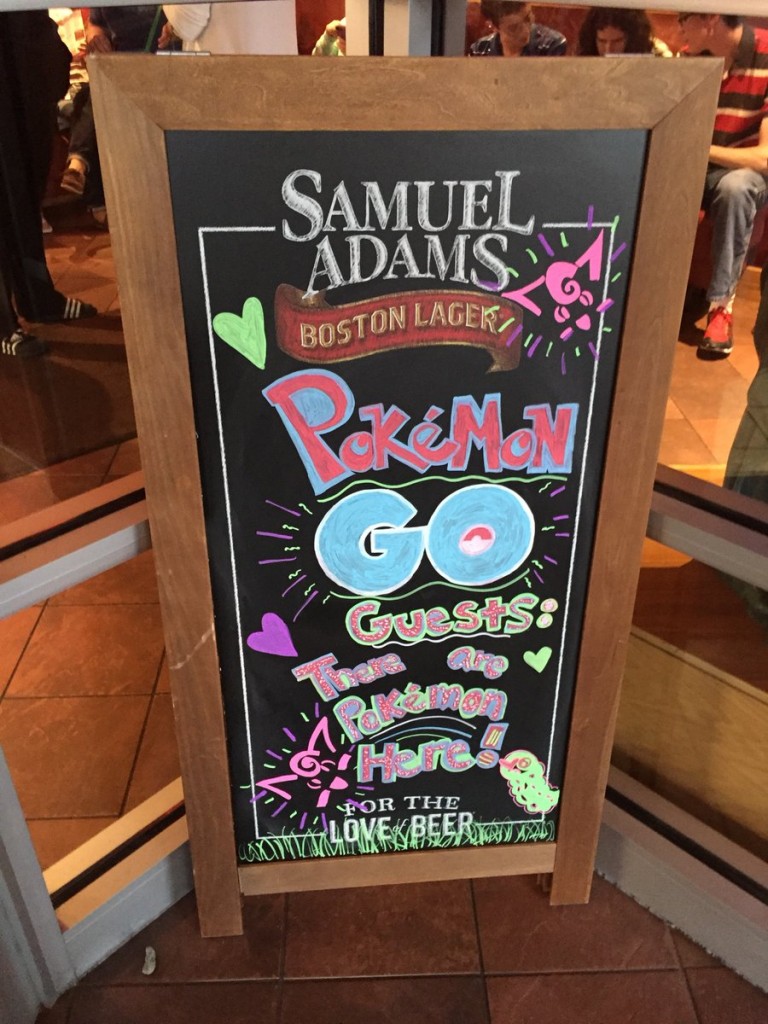 SAMUEL
ADAMS
BOSTON LAGER
POKéMON
GO
GUESTS:
There are
Pokémon
Here!
FOR THE
LOVE of BEER